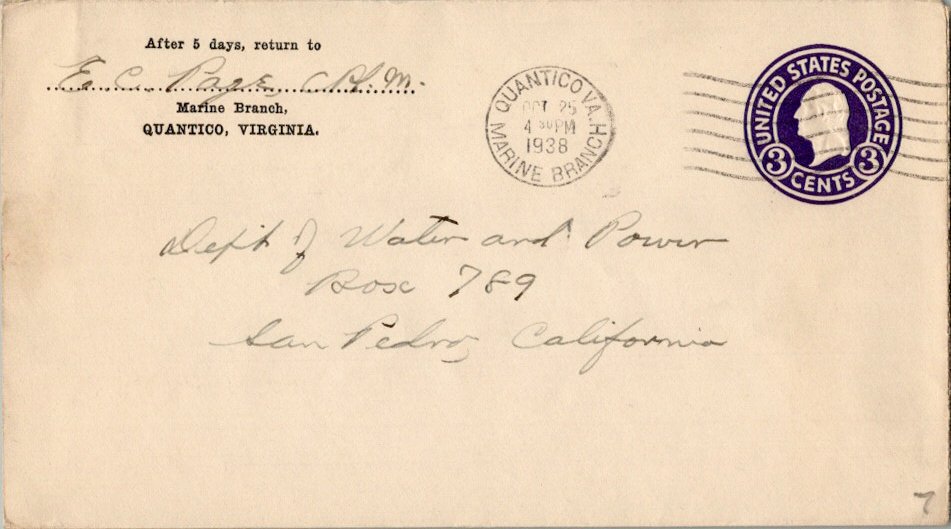 After 5 days, return to
E. C. Page, Ch. M.
Marine Branch,
QUANTICO, VIRGINIA.
QUANTICO, VA.
OCT 25
4 30 PM
1938
MARINE BRANCH
UNITED STATES POSTAGE
3 CENTS 3
Dept of Water and Power
Box 789
San Pedro, California
7